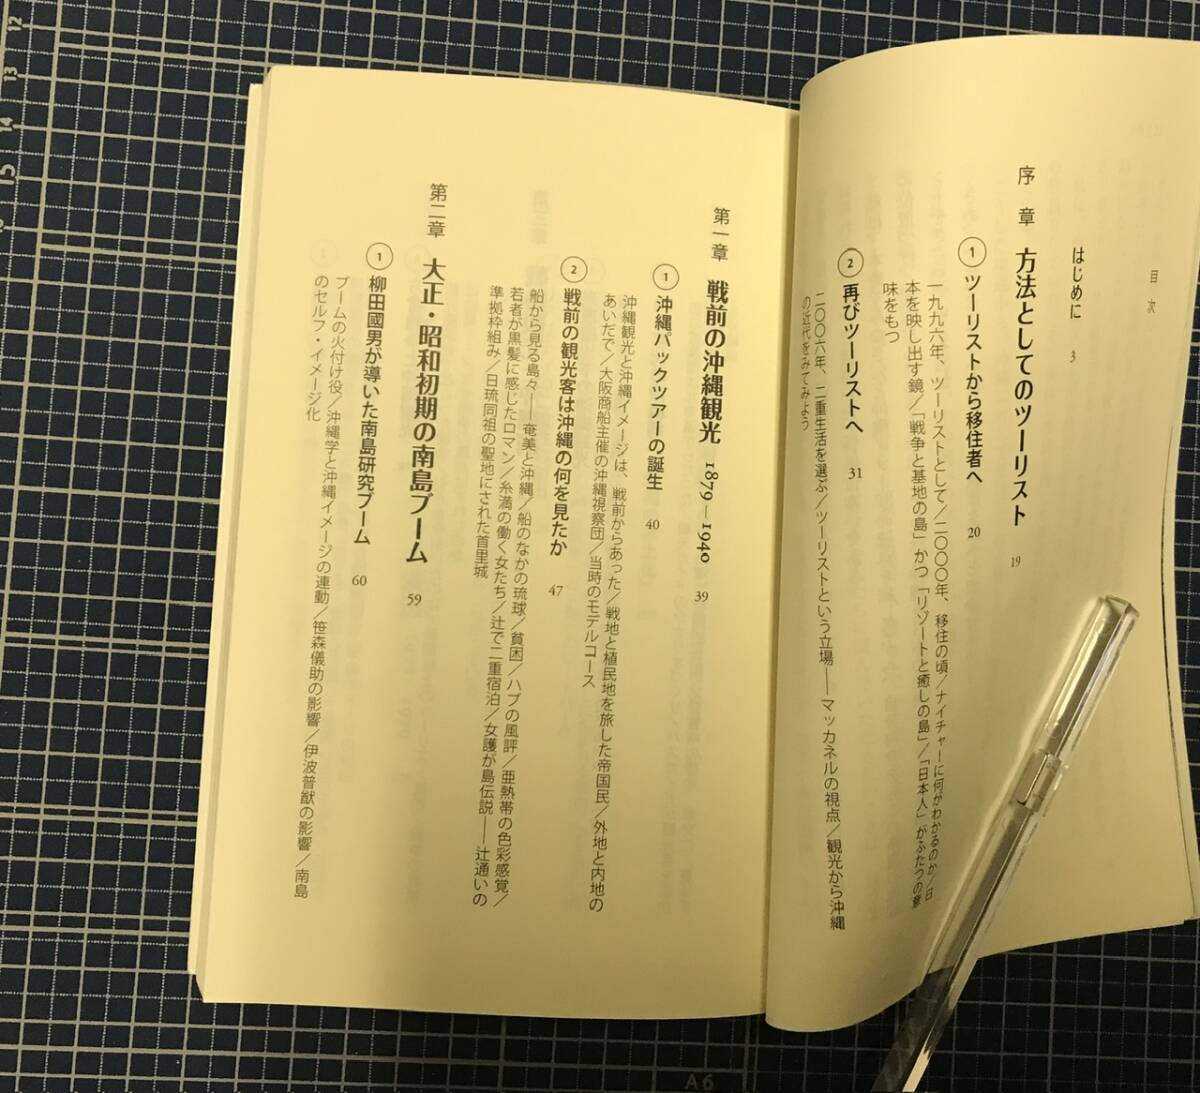 目次
はじめに 3
序章 方法としてのツーリスト 19
① ツーリストから移住者へ 20
一九九六年、ツーリストとして/二〇〇〇年、移住の頃/ナイチャーに何がわかるのか/日
本を映し出す鏡/「戦争と基地の島」かつ「リゾートと癒しの島」/「日本人」がふたつの意
味をもつ
② 再びツーリストへ 31
二〇〇六年、二重生活を選ぶ/ツーリストという立場――マッカネルの視点/観光から沖縄
の近代をみてみよう
第一章 戦前の沖縄観光 1879―1940 39
① 沖縄パックツアーの誕生 40
沖縄観光と沖縄イメージは、戦前からあった/戦地と植民地を旅した帝国民/外地と内地の
あいだで/大阪商船主催の沖縄視察団/当時のモデルコース
② 戦前の観光客は沖縄の何を見たか 47
船から見る島々――奄美と沖縄/船のなかの琉球/貧困/ハブの風評/亜熱帯の色彩感覚/
若者が黒髪に感じたロマン/糸満の働く女たち/辻で二重宿泊/女護が島伝説――辻通いの
準拠枠組み/日琉同祖の聖地にされた首里城
第二章 大正・昭和初期の南島ブーム 59
① 柳田國男が導いた南島研究ブーム 60
ブームの火付け役/沖縄学と沖縄イメージの連動/笹森儀助の影響/伊波普猷の影響/南島
のセルフ・イメージ化
12
13
14
15
A6